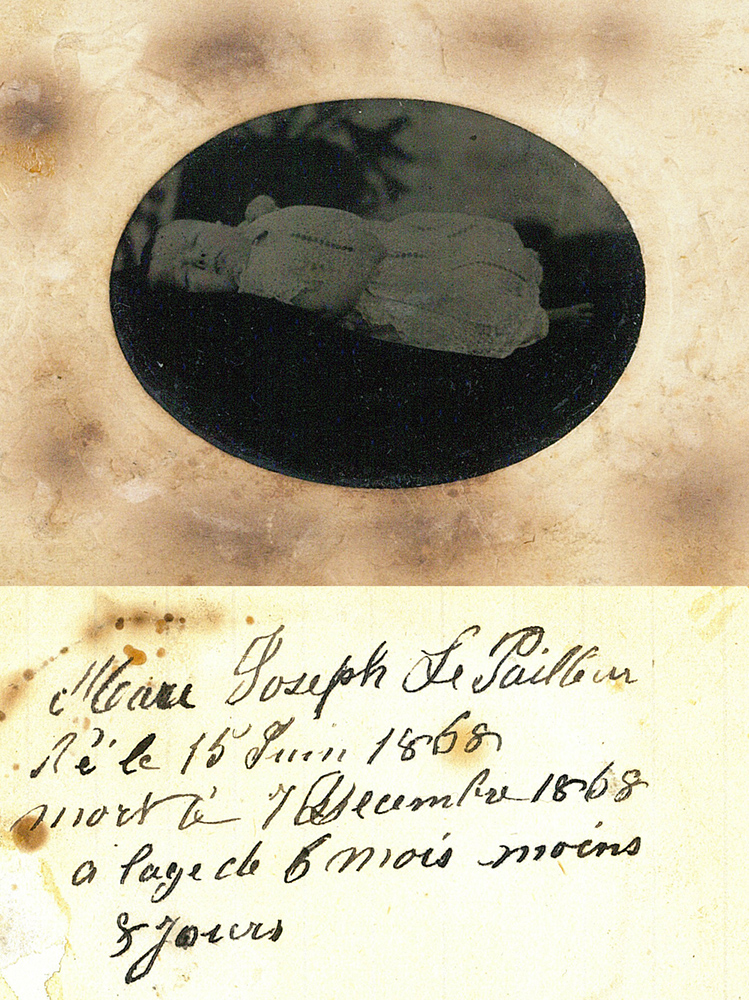 Marc Joseph Le Pailleur
Né le 15 Juin 1868
mort à 7 Décembre 1868
a lage de 6 mois moins
8 jours